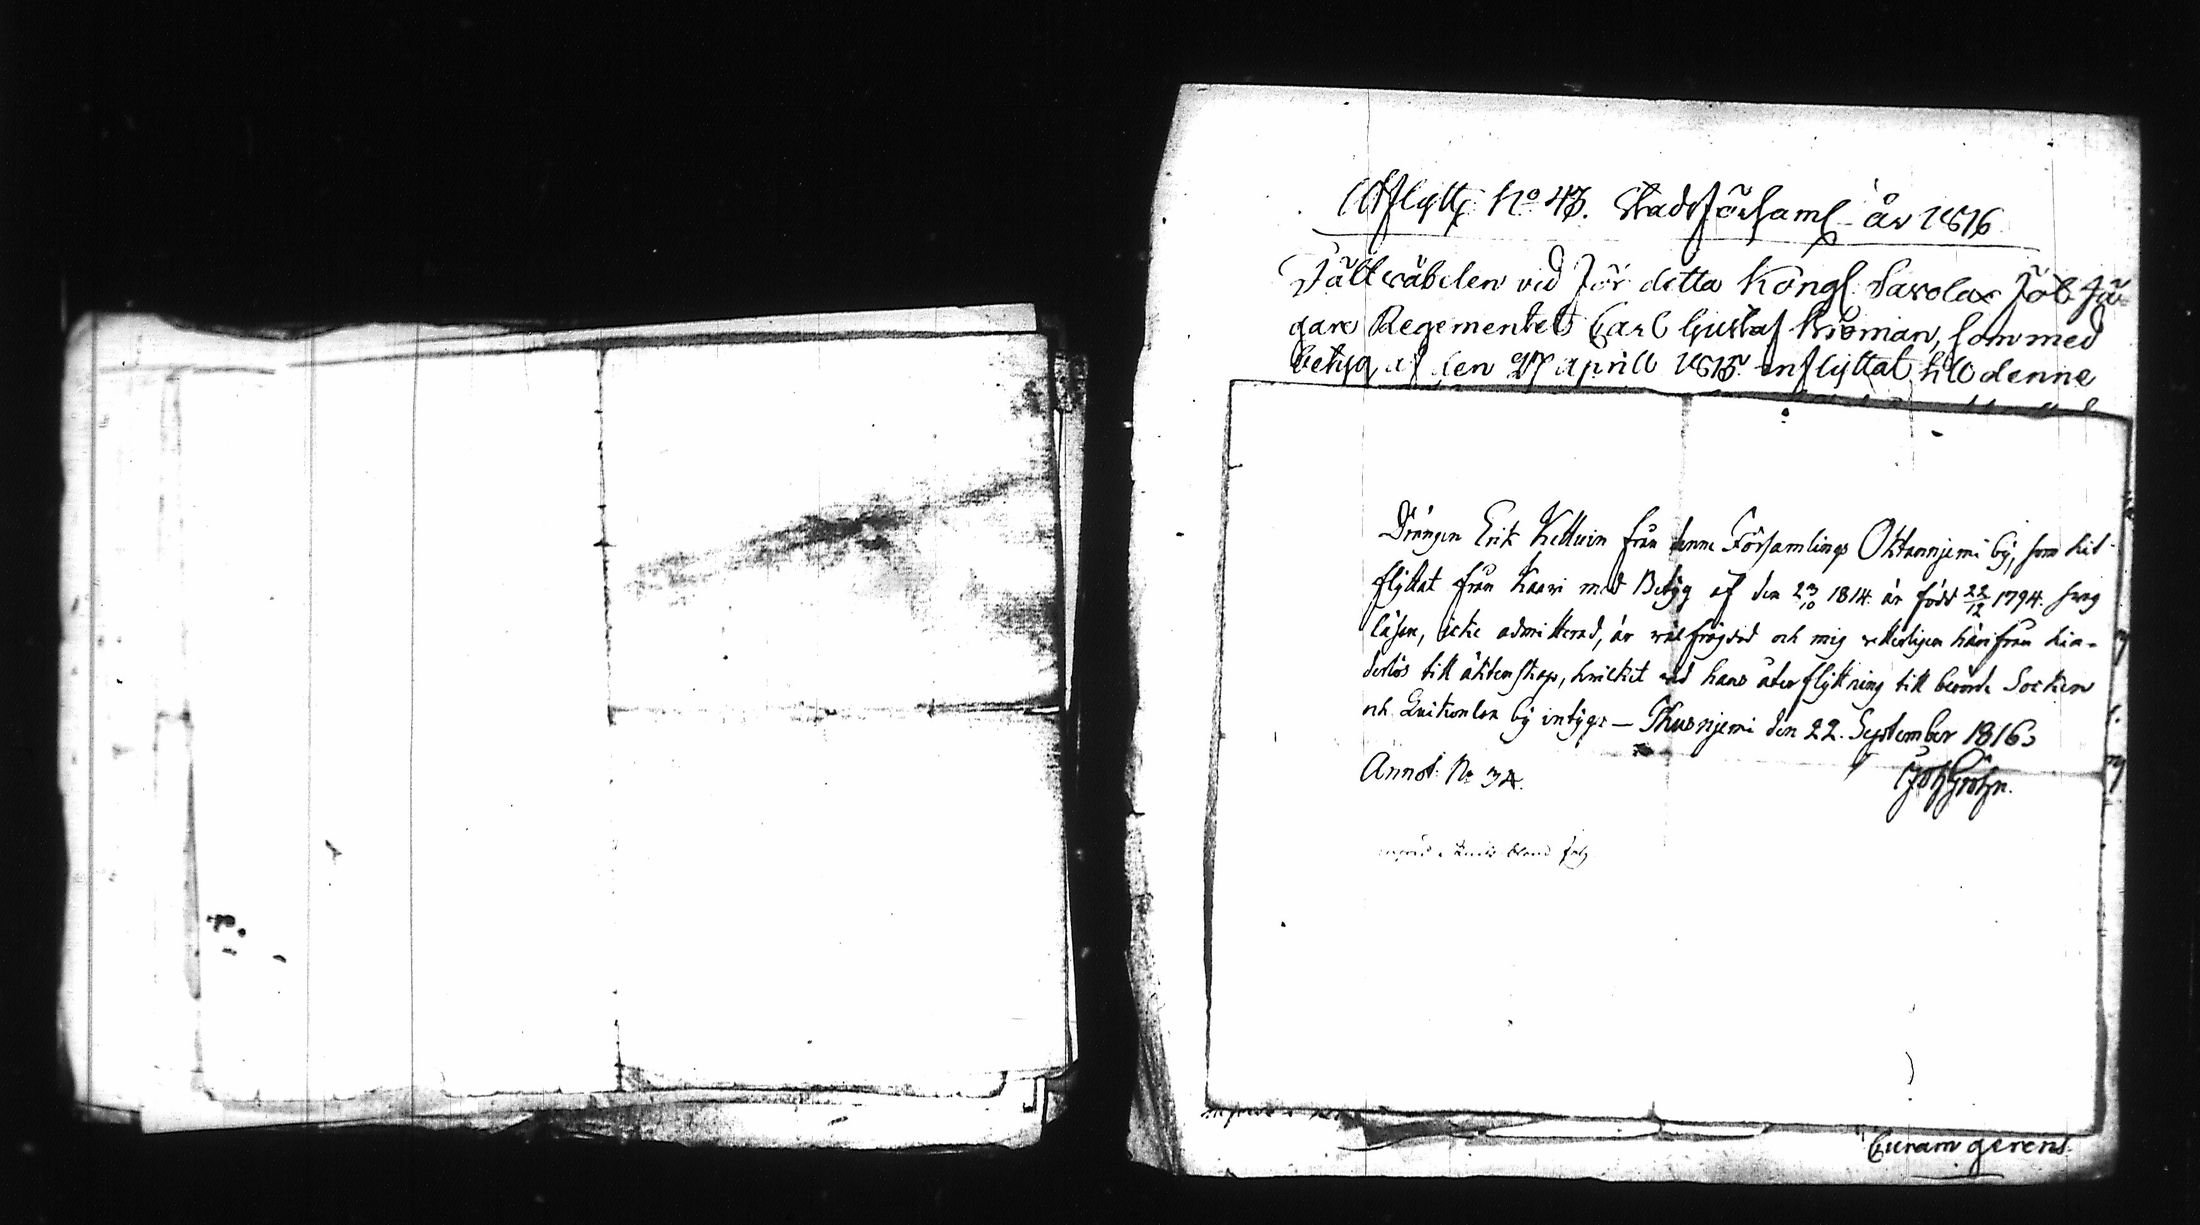 Utflyttg No 43. Stadsförsaml år 1816
Fältwäbelen vid för detta Kongl Savolax Fot Jä-
gare Regementet Carl Gustaf Broman, som med
betyg af den 27 Aprill 1815 inflyttat till denne
Drängen Erik Kettuin från denne Församlings Oktannjemi by, som hit
flyttat från Kaavi med Betyg af den 23/10 1814 är född 22/12 1794. swag
läsen, icke admitterad, är wälfrägdad och mig wetterligen härifrån hin-
derlös till äktenskap, hwilket wid hans återflyttning till berörde Socken
och by intygr — Thusnjemi den 22. September 1816
Annot: No 34.
Joh Gröhn.
Curam gerens